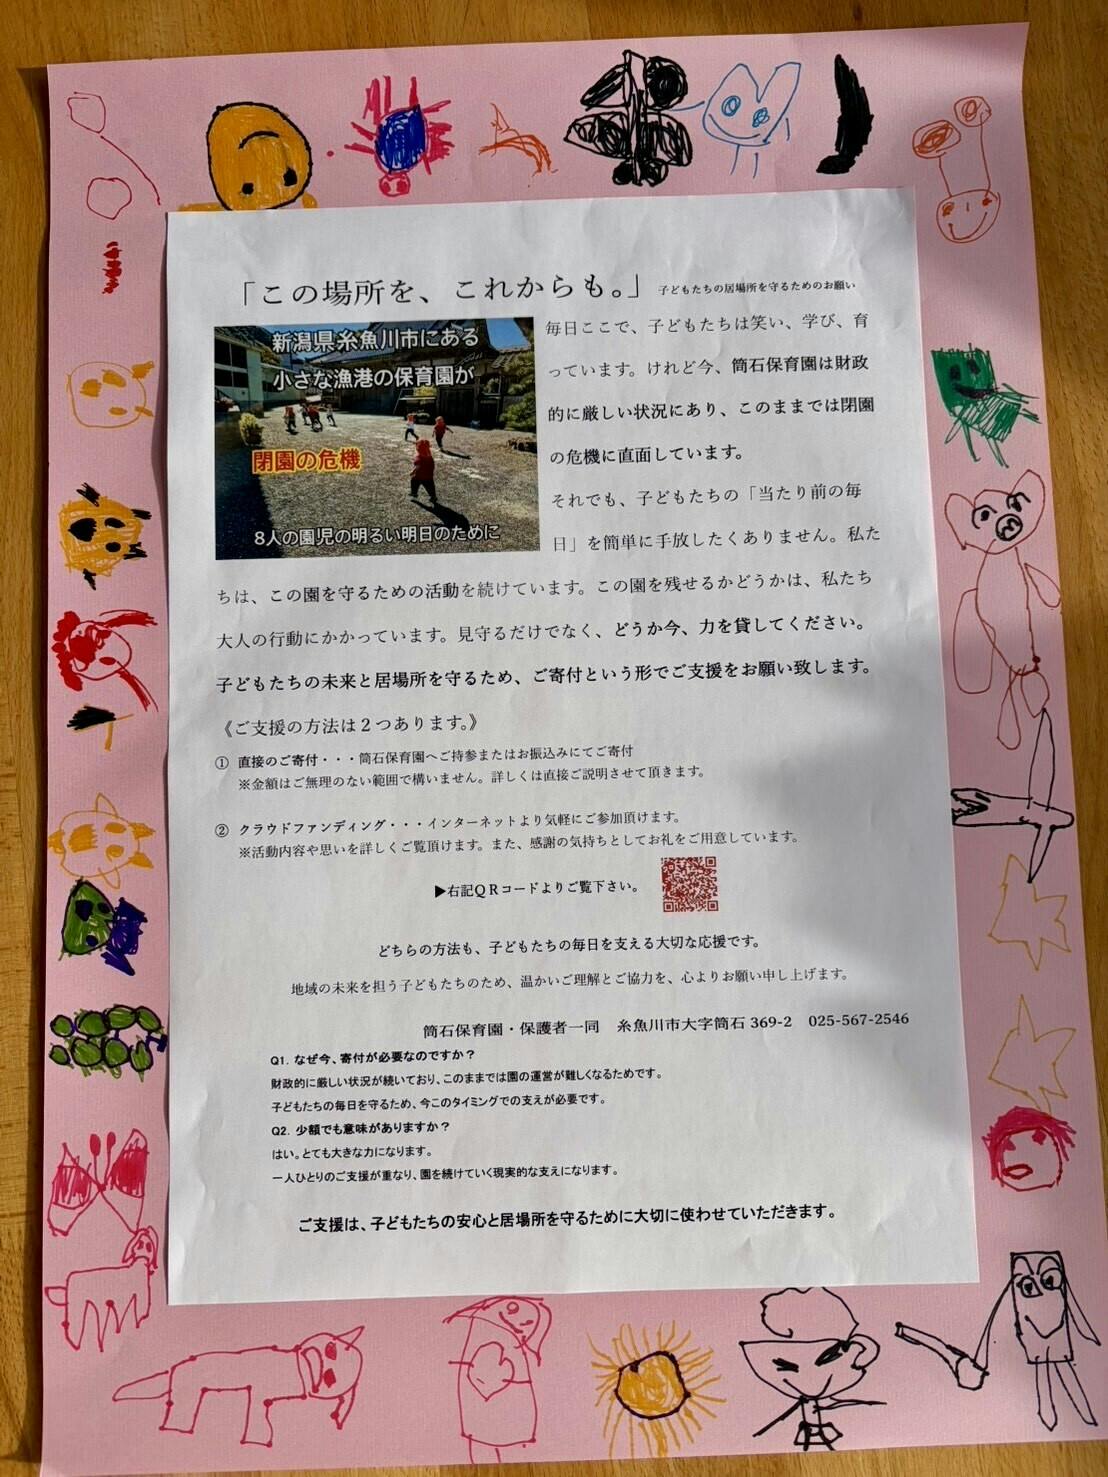 「この場所を、これからも。」 子どもたちの居場所を守るためのお願い
新潟県糸魚川市にある
小さな漁港の保育園が
閉園の危機
8人の園児の明るい明日のために
毎日ここで、子どもたちは笑い、学び、育
っています。けれど今、筒石保育園は財政
的に厳しい状況にあり、このままでは閉園
の危機に直面しています。
それでも、子どもたちの「当たり前の毎
日」を簡単に手放したくありません。私た
ちは、この園を守るための活動を続けています。この園を残せるかどうかは、私たち
大人の行動にかかっています。見守るだけでなく、どうか今、力を貸してください。
子どもたちの未来と居場所を守るため、ご寄付という形でご支援をお願い致します。
《ご支援の方法は２つあります。》
① 直接のご寄付・・・筒石保育園へご持参またはお振込みにてご寄付
※金額はご無理のない範囲で構いません。詳しくは直接ご説明させて頂きます。
② クラウドファンディング・・・インターネットより気軽にご参加頂けます。
※活動内容や思いを詳しくご覧頂けます。また、感謝の気持ちとしてお礼をご用意しています。
▶右記ＱＲコードよりご覧下さい。
どちらの方法も、子どもたちの毎日を支える大切な応援です。
地域の未来を担う子どもたちのため、温かいご理解とご協力を、心よりお願い申し上げます。
筒石保育園・保護者一同　糸魚川市大字筒石 369-2　025-567-2546
Q1. なぜ今、寄付が必要なのですか？
財政的に厳しい状況が続いており、このままでは園の運営が難しくなるためです。
子どもたちの毎日を守るため、今このタイミングでの支えが必要です。
Q2. 少額でも意味がありますか？
はい。とても大きな力になります。
一人ひとりのご支援が重なり、園を続けていく現実的な支えになります。
ご支援は、子どもたちの安心と居場所を守るために大切に使わせていただきます。